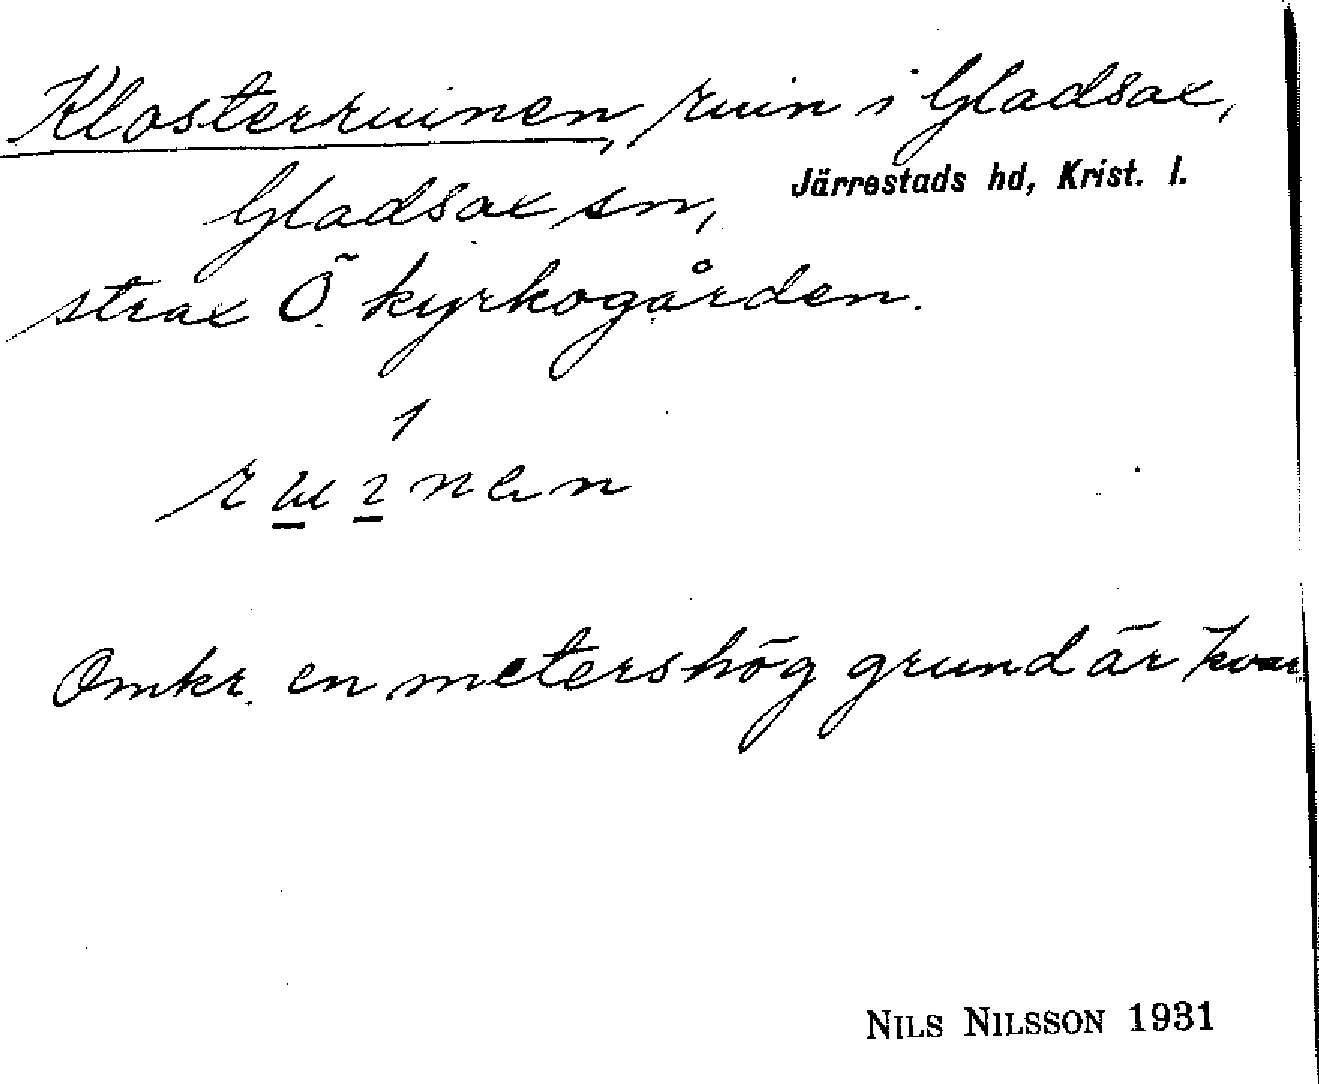 Klosterruinen, ruin i Gladsax,
Gladsax sn, Järrestads hd, Krist. l.
strax Ö. kyrkogården.
Omkr. en meters hög grund är kvar
NILS NILSSON 1931